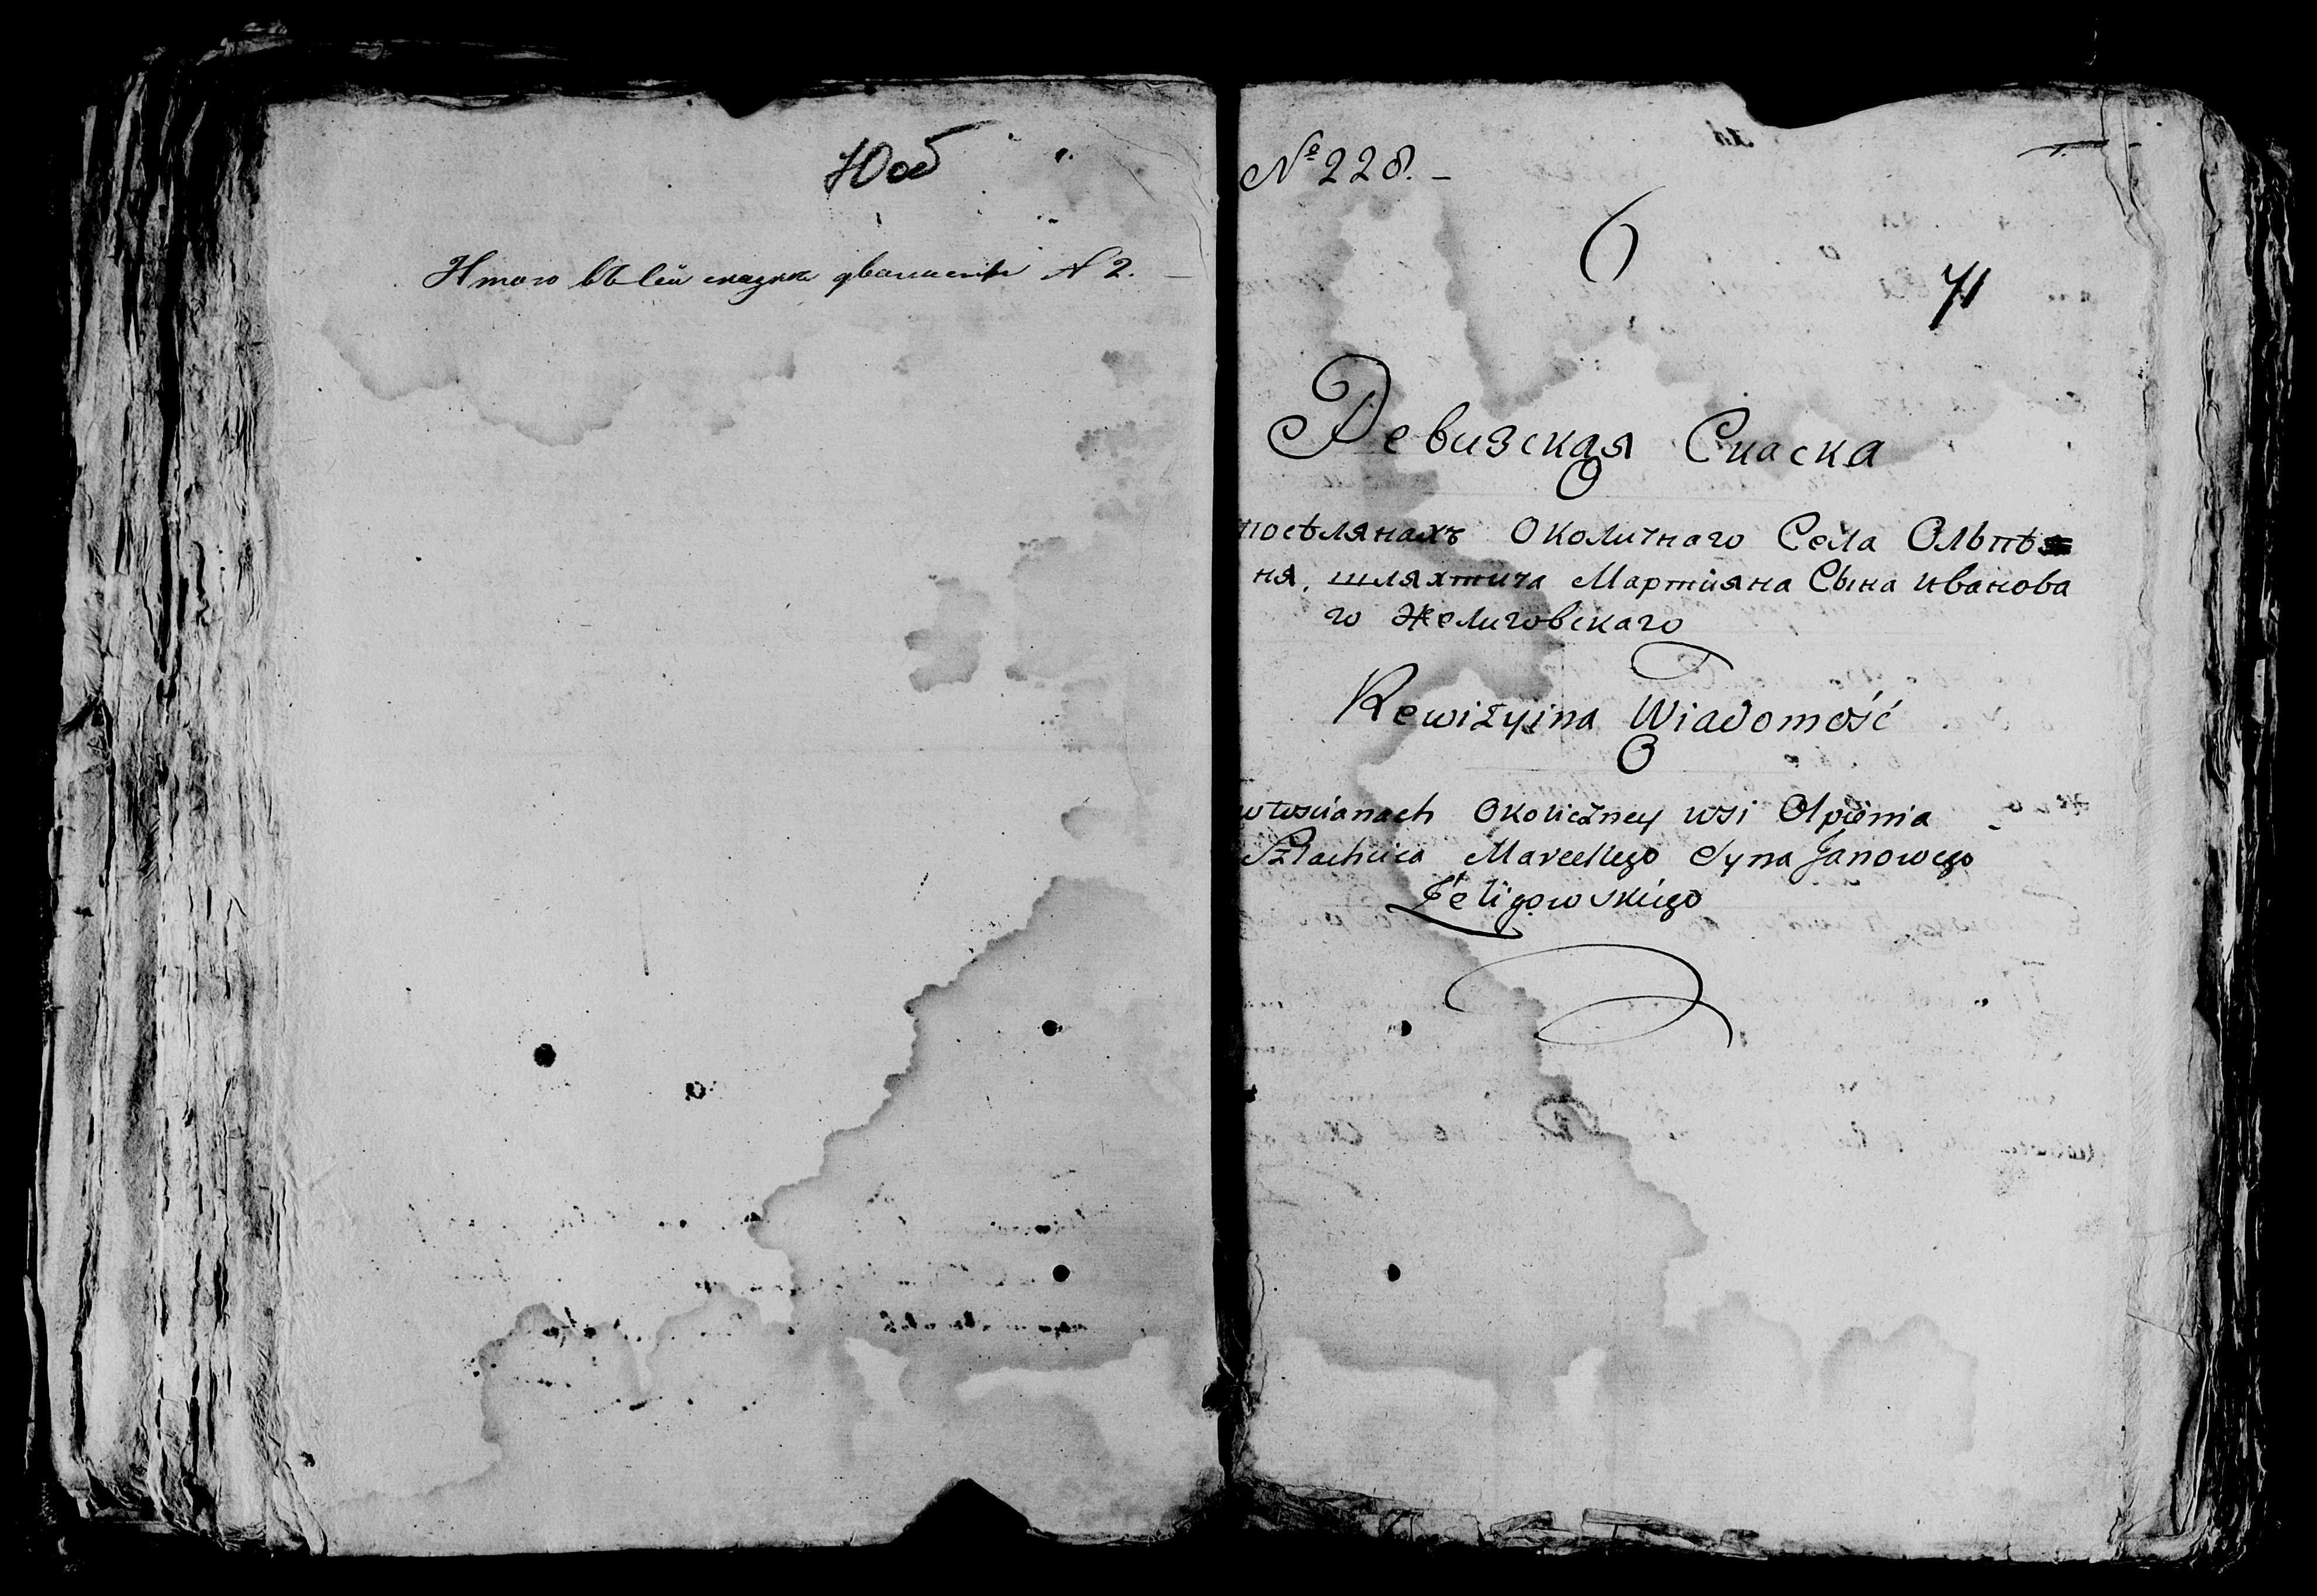 70об
Итого въ сей сказке листъ № 2.
№ 228.
6
71
Ревизская Скаска
О
поселянахъ Околичнаго Села Ольпѣ
ня, шляхтича Мартияна Сына Иванова
го Желиговскаго
Rewizyina Wiadomość
O
włościanach Okoliczney wsi Olpienia
Szlachcica Marcellego Syna Janowego
Żeligowskiego